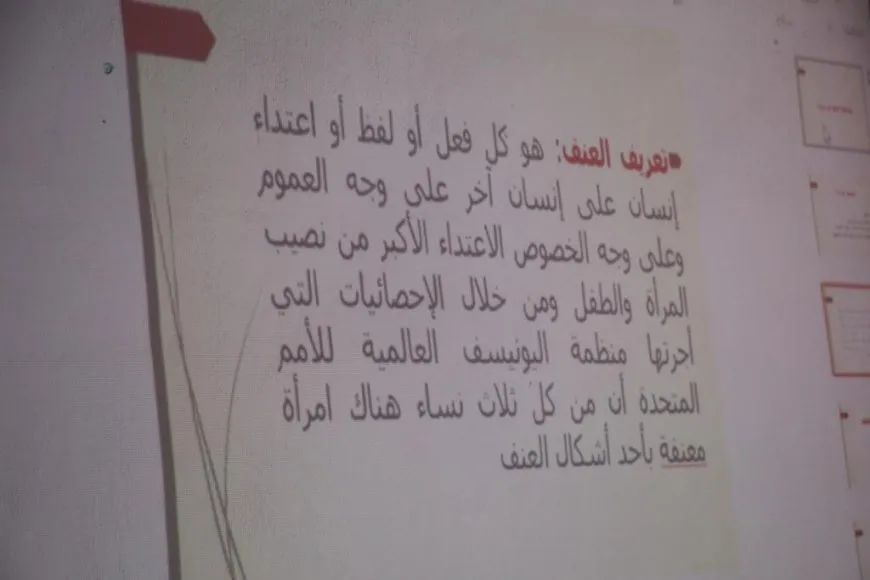 تعريف العنف: هو كل فعل أو لفظ أو اعتداء
إنسان على إنسان آخر على وجه العموم
وعلى وجه الخصوص الاعتداء الأكبر من نصيب
المرأة والطفل ومن خلال الإحصائيات التي
أجرتها منظمة اليونيسف العالمية للأمم
المتحدة أن من كل ثلاث نساء هناك امرأة
معنفة بأحد أشكال العنف